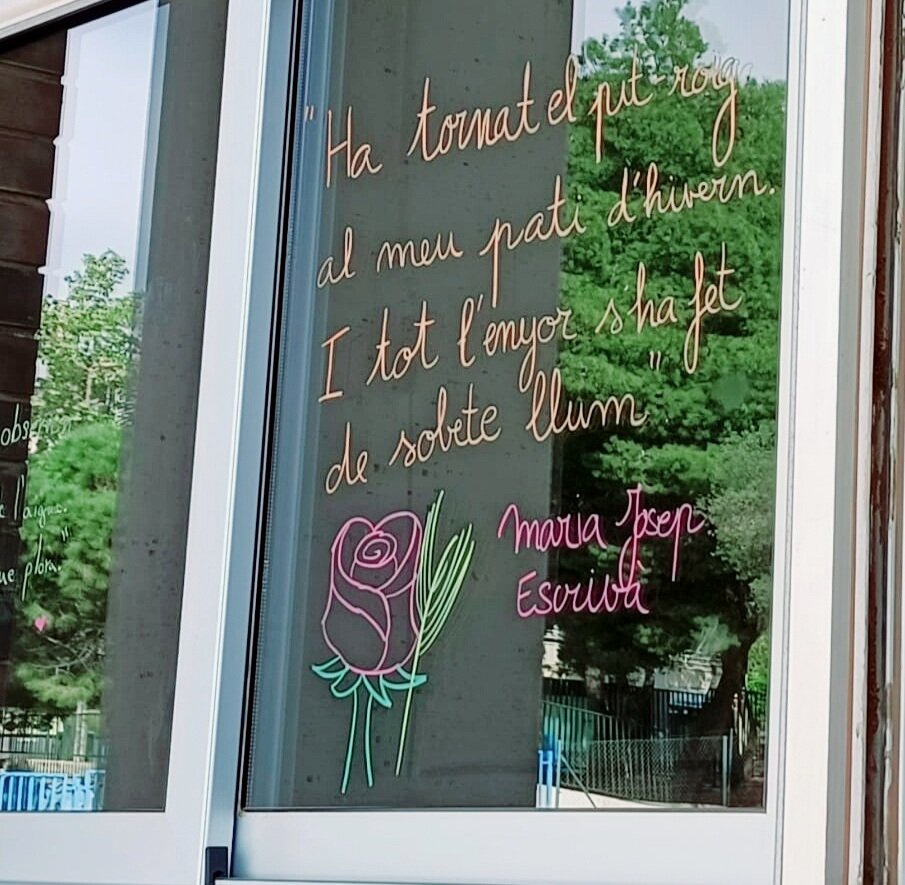 "Ha tornat el pit-roig
al meu pati d'hivern.
I tot l'enyor s'ha fet
de sobte llum"
Maria Josep
Escrivà
l'aigua.
plora."